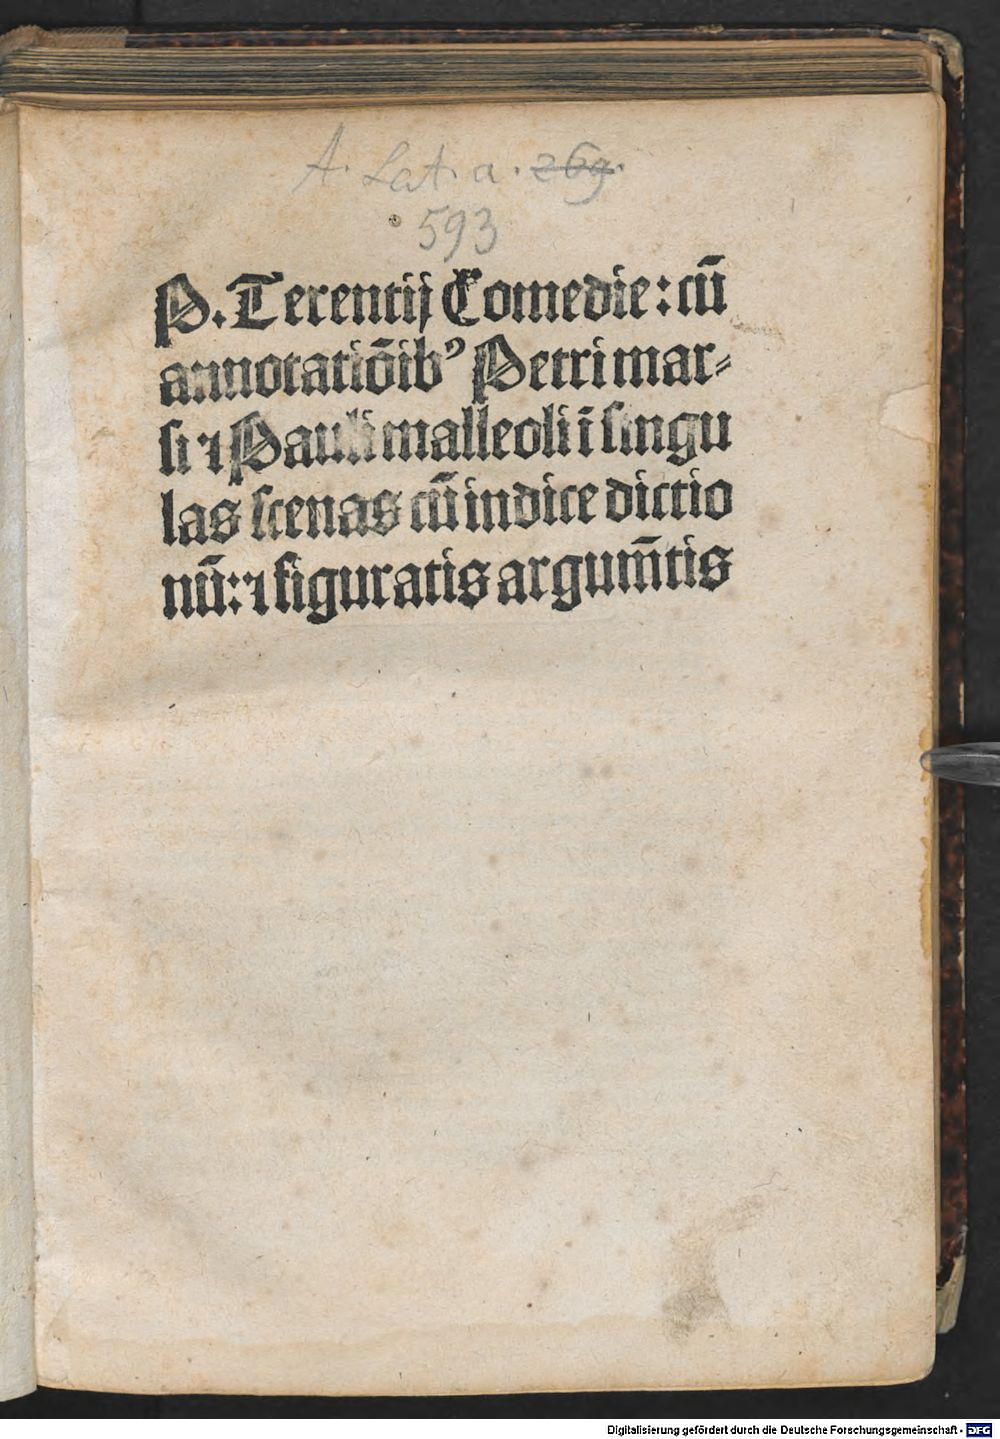 A. Lat. a. 269.
593
P. Terentij Comedie: cū
annotatiōibꝰ Petri mar⸗
si ⁊ Pauli malleoli ī singu
las scenas cū indice dictio
nū: ⁊ figuratis argum̄tis
Digitalisierung gefördert durch die Deutsche Forschungsgemeinschaft - DFG